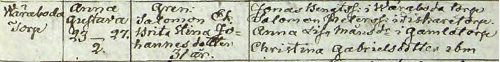 Wäraboda Torp
Anna Gustava 23 – 27. 2.
Gren. Salomon Ek. Brita Stina Johannesdotter 31 år.
Jonas Bengtss. i Wäraboda Torp
Salomon Peterss. i torp
Anna Lisa Månsd. i Gamlatorp
Christina Gabrielsdotter ibm